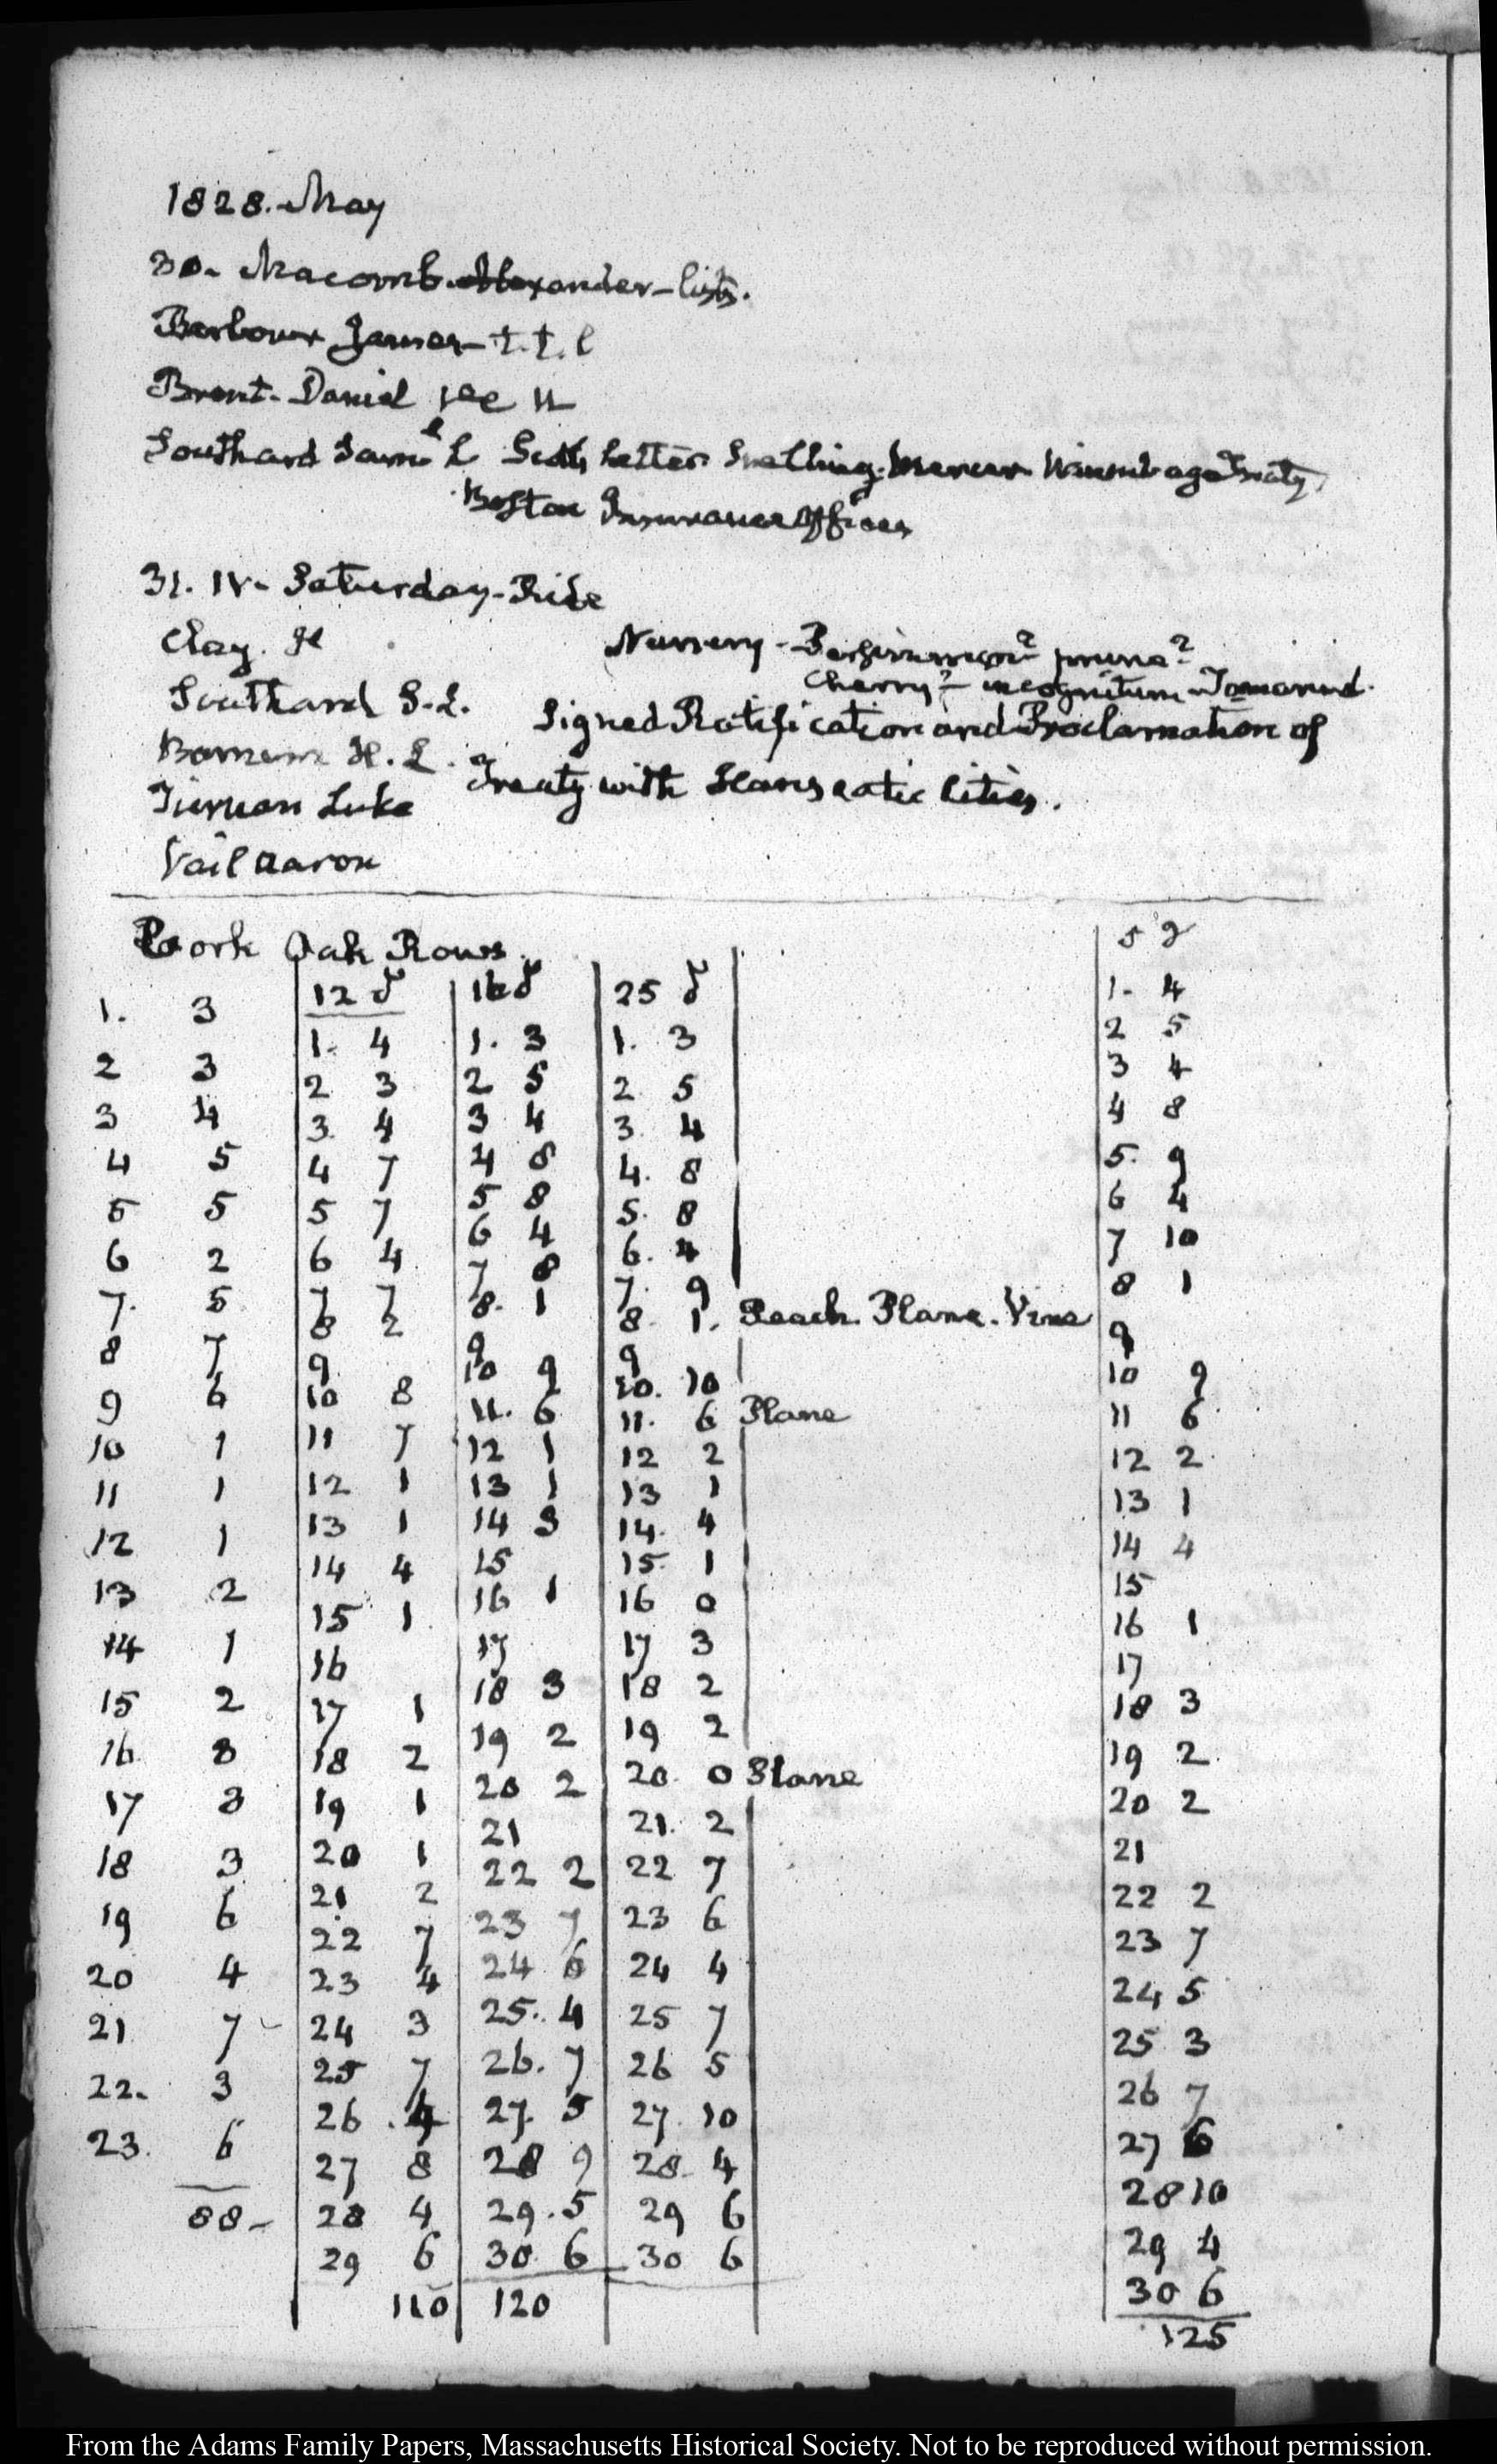 1828. May
30. Macomb Alexander - lists.
Barbour James - t. t. l
Brent. Daniel
Southard Saml L Letter Snelling. Mercer Winnebago Treaty
Boston Insurance Offices
31. IV. Saturday - Ride
Clay. H
Nursery - Persimmon? prune?
Cherry? - incognitum - Tamarind.
Southard S. L.
Signed Ratification and Proclamation of
H. L.
Treaty with Hanseatic Cities.
Tiernan Luke
Vail Aaron
Cork Oak Rows.
5 J
12 J 16 J 25 J
1. 3
2 3
3 4
4 5
5 5
6 2
7. 5
8 7
9 6
10 1
11 1
12 1
13 2
14 1
15 2
16 3
17 3
18 3
19 6
20 4
21 7
22. 3
23. 6
88
1. 4
2 3
3. 4
4 7
5 7
6 4
7 7
8 2
9
10 8
11 7
12 1
13 1
14 4
15 1
16
17 1
18 2
19 1
20 1
21 2
22 7
23 4
24 3
25 7
26 4
27 8
28 4
29 6
110
1. 3
2 5
3 4
4 8
5 8
6 4
7 8
8. 1
9
10 9
11. 6
12 1
13 1
14 3
15
16 1
17
18 3
19 2
20 2
21
22 2
23 7
24 6
25. 4
26. 7
27. 5
28 9
29. 5
30 6
120
1. 3
2 5
3. 4
4. 8
5. 8
6. 4
7. 9
8. 1. Peach. Plane. Vine
9
10. 10
11. 6 Plane
12 2
13 1
14. 4
15. 1
16 0
17 3
18 2
19 2
20. 0 Plane
21. 2
22 7
23 6
24 4
25 7
26 5
27. 10
28. 4
29 6
30 6
1. 4
2 5
3 4
4 8
5. 9
6 4
7 10
8 1
9
10 9
11 6
12 2
13 1
14 4
15
16 1
17
18 3
19 2
20 2
21
22 2
23 7
24 5
25 3
26 7
27 6
28 10
29 4
30 6
125
From the Adams Family Papers, Massachusetts Historical Society. Not to be reproduced without permission.